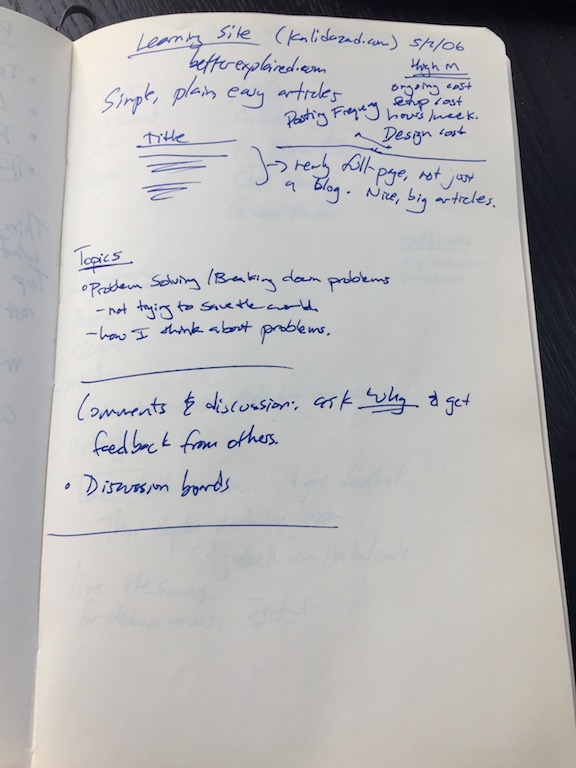 Learning Site (kalidazad.com) 5/2/06
betterexplained.com
High M
Simple, plain easy articles
ongoing cost
setup cost
Posting Frequency hours/week.
Design cost
Title
→ really full-page, not just
a blog. Nice, big articles.
Topics
• Problem Solving / Breaking down problems
- not trying to save the world
- how I think about problems.
Comments & discussion: ask why & get
feedback from others.
• Discussion boards